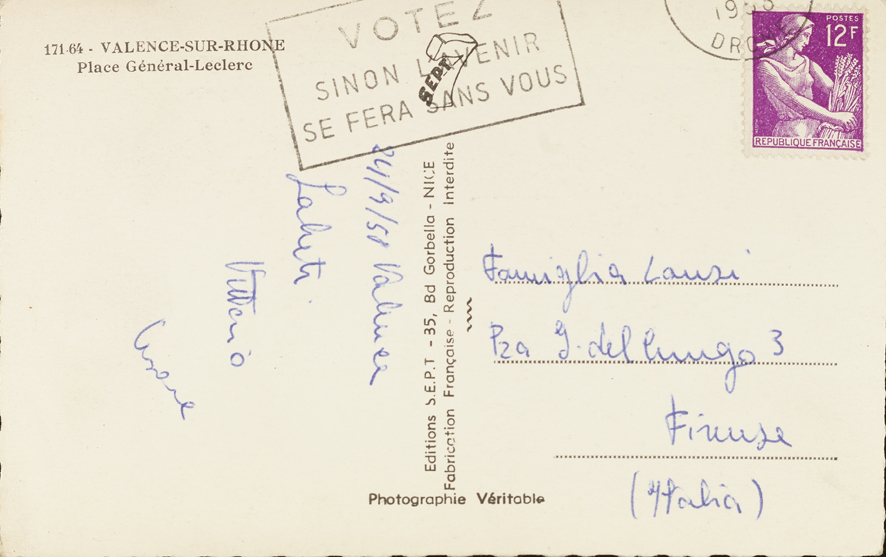 171-64 - VALENCE-SUR-RHONE
Place Général-Leclerc
VOTEZ
SINON L'AVENIR
SE FERA SANS VOUS
SEPT
1958
DRO
POSTES
12F
REPUBLIQUE FRANÇAISE
24/9/58 Valence
Saluti
Vittorio
Editions S.E.P.T - 35, Bd Gorbella - NICE
Fabrication Française - Reproduction Interdite
Famiglia Lanzi
Pza G. del lungo 3
Firenze
(Italia)
Photographie Véritable